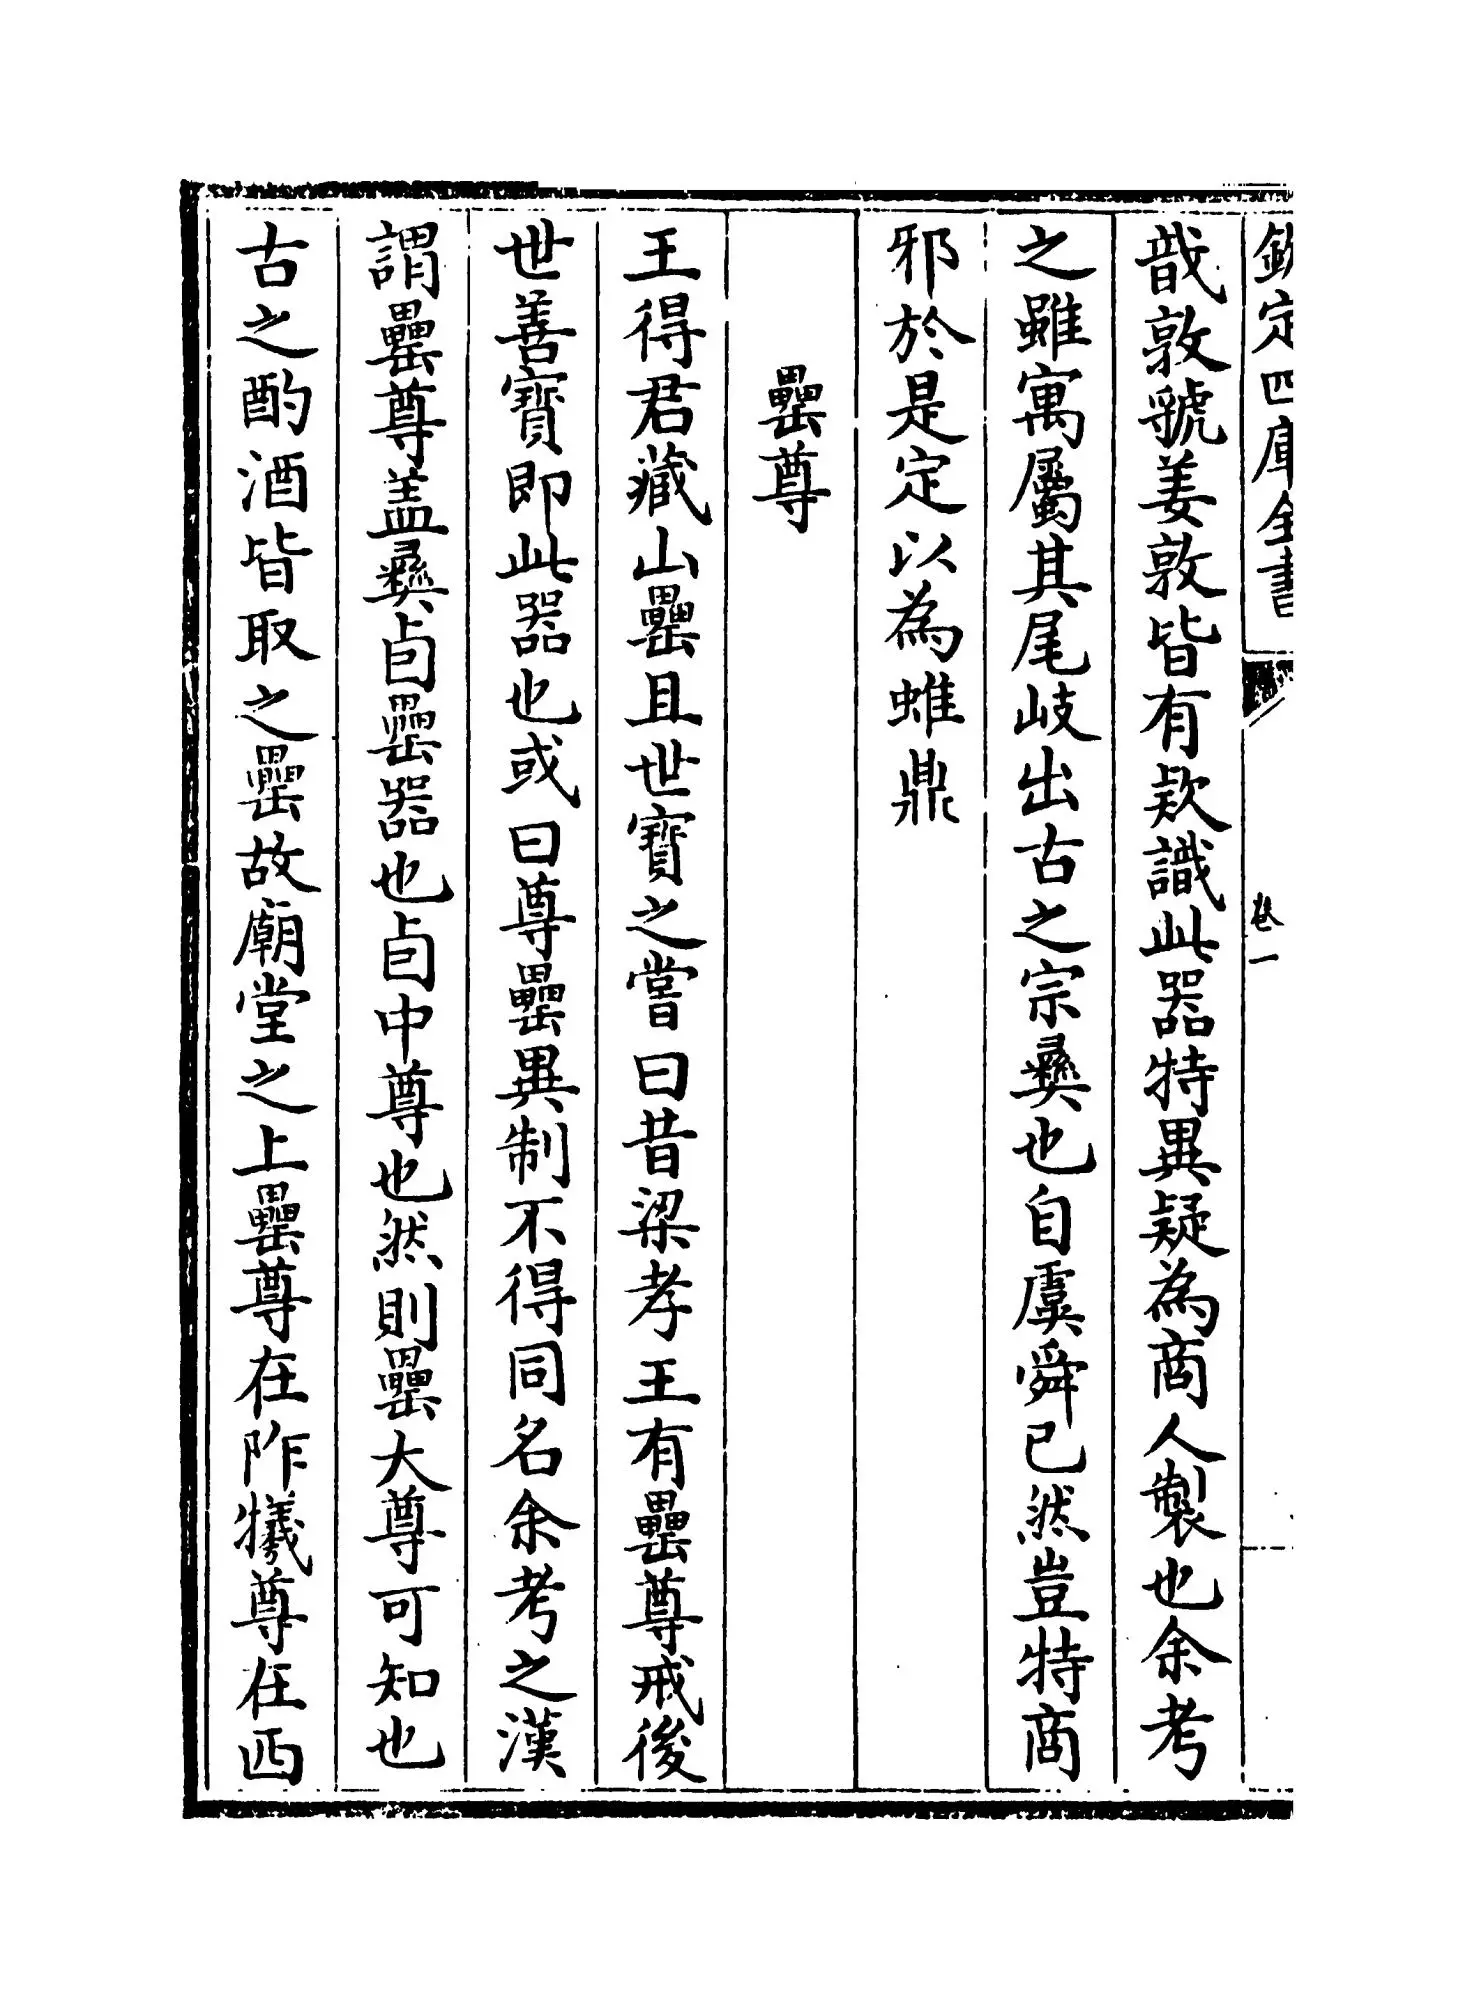 欽定四庫全書
卷一
戠敦虢姜敦皆有欵識此器特異疑為商人製也余考
之雖寓屬其尾岐出古之宗彝也自虞舜已然豈特商
邪於是定以為蜼鼎
罍尊
王得君藏山罍且世寶之嘗曰昔梁孝王有罍尊戒後
世善寶即此器也或曰尊罍異制不得同名余考之漢
謂罍尊盖彝卣罍器也卣中尊也然則罍大尊可知也
古之酌酒皆取之罍故廟堂之上罍尊在阼犧尊在西